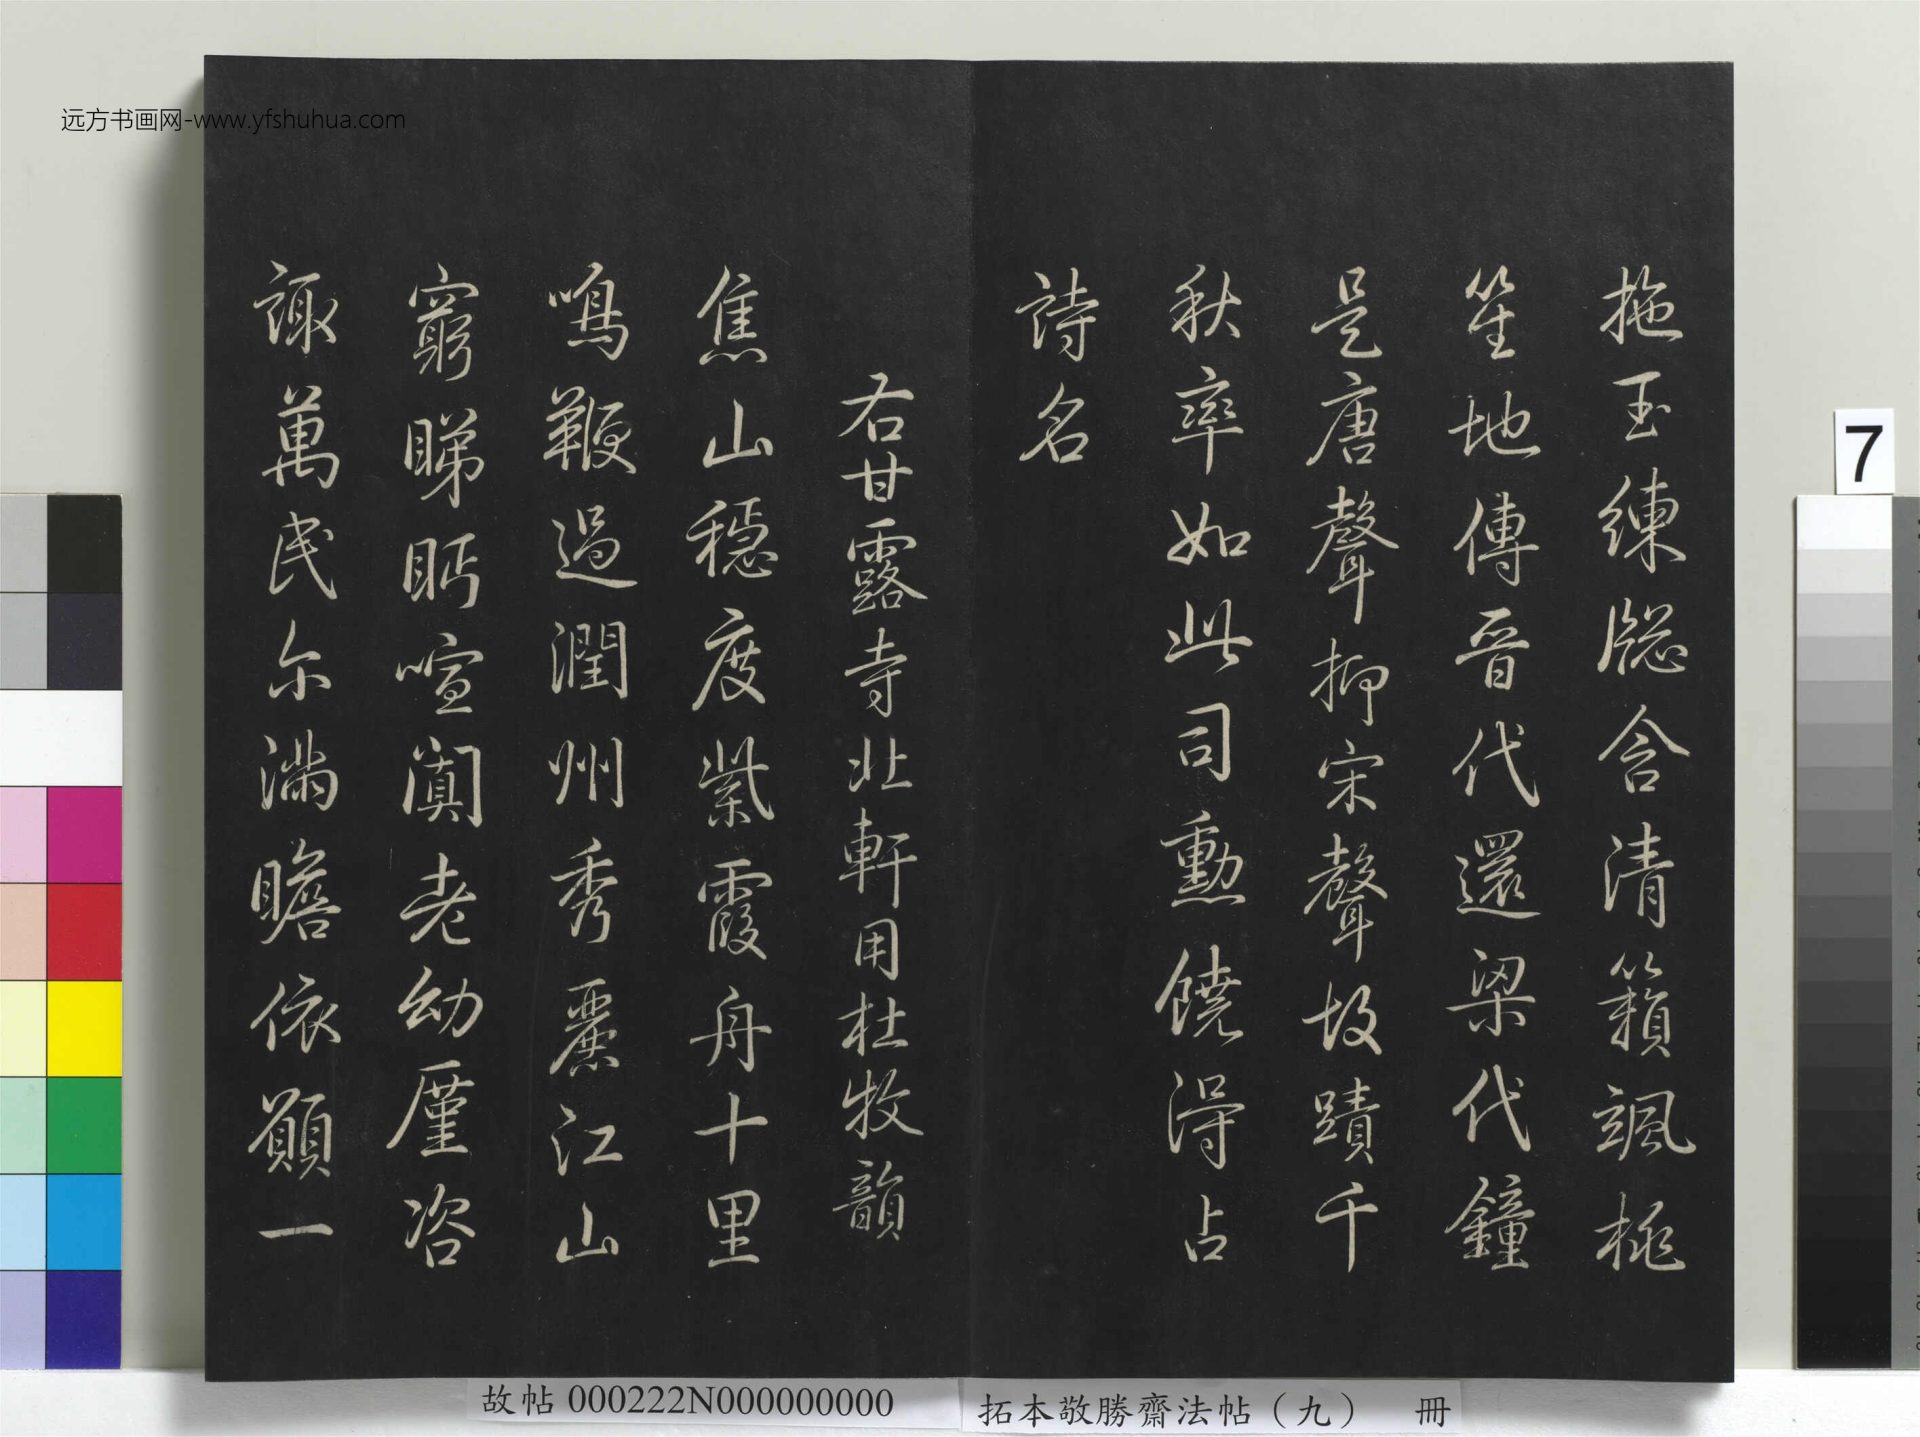 远方书画网-www.yfshuhua.com
拖玉練牕含清籟颯桃
笙地傳晋代還梁代鐘
是唐聲抑宋聲故蹟千
秋率如此司勳饒得占
詩名
右甘露寺北軒用杜牧韻
焦山穩度紫霞舟十里
鳴鞭過潤州秀麗江山
窮睇眄喧闐老幼廑咨
諏萬民尔滿瞻依願一
7
故帖 000222N000000000
拓本敬勝齋法帖（九） 冊